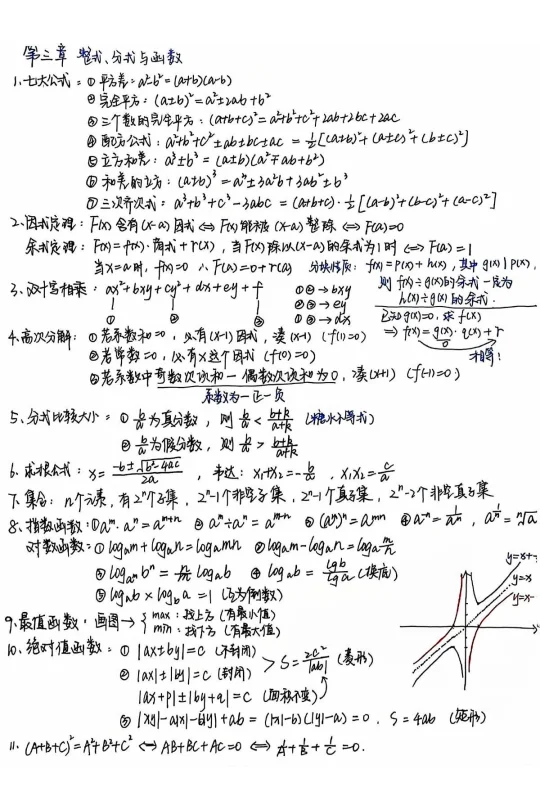 第三章 整式、分式与函数
1、七大公式：① 平方差：a²-b²=(a+b)(a-b)
② 完全平方：(a±b)²=a²±2ab+b²
③ 三个数的完全平方：(a+b+c)²=a²+b²+c²+2ab+2bc+2ac
④ 配方公式：a²+b²+c²±ab±bc±ac = ½[(a±b)²+(a±c)²+(b±c)²]
⑤ 立方和差：a³±b³=(a±b)(a²∓ab+b²)
⑥ 和差的立方：(a±b)³=a³±3a²b+3ab²±b³
⑦ 三次齐次式：a³+b³+c³-3abc=(a+b+c)·½[(a-b)²+(b-c)²+(a-c)²]
2、因式定理：F(x)含有(x-a)因式⇔F(x)能被(x-a)整除⇔F(a)=0
余式定理：F(x)=f(x)·商式+r(x)，当F(x)除以(x-a)的余式为1时⇔F(a)=1
当x=a时，f(x)=0 ∴F(a)=0+r(a) 分块性质：f(x)=p(x)+h(x)，其中g(x)|p(x)，
则f(x)÷g(x)的余式一定为
h(x)÷g(x)的余式.
3、双十字相乘：ax²+bxy+cy²+dx+ey+f ①②→bxy
②③→ey
① ② ③ ①③→dx
已知g(x)=0，求f(x)
⇒f(x)=g(x)·q(x)+r
0 相等！
4、高次分解：① 若系数和=0，必有(x-1)因式，凑(x-1) (f(1)=0)
② 若常数=0，必有x这个因式 (f(0)=0)
③ 若系数中奇数次项和-偶数次项和为0，凑(x+1) (f(-1)=0)
系数为一正一负
5、分式比较大小：① b/a为真分数，则 b/a < (b+k)/(a+k) (糖水不等式)
② b/a为假分数，则 b/a > (b+k)/(a+k)
6、求根公式：x=(-b±√(b²-4ac))/2a，韦达：x₁+x₂=-b/a，x₁x₂=c/a
7、集合：n个元素，有2ⁿ个子集，2ⁿ-1个非空子集，2ⁿ-1个真子集，2ⁿ-2个非空真子集
8、指数函数：① aᵐ·aⁿ=aᵐ⁺ⁿ ② aᵐ÷aⁿ=aᵐ⁻ⁿ ③ (aᵐ)ⁿ=aᵐⁿ ④ a⁻ⁿ=1/aⁿ，a^(1/n)=ⁿ√a
对数函数：① logₐm+logₐn=logₐmn ② logₐm-logₐn=logₐ(m/n)
③ log_(aᵐ) bⁿ=(n/m)logₐb ④ logₐb=lgb/lga (换底)
⑤ logₐb×log_b a=1 (互为倒数)
9、最值函数，画图→{ max：找上方 (有最小值)
min：找下方 (有最大值)
10、绝对值函数：① |ax±by|=c (不封闭)
② |ax|±|by|=c (封闭) > S=2c²/|ab| (菱形)
|ax+p|±|by+q|=c (面积不变)
③ |xy|-a|x|-b|y|+ab=(|x|-b)(|y|-a)=0，S=4ab (矩形)
11、(A+B+C)²=A²+B²+C²⇔AB+BC+AC=0⇔1/A+1/B+1/C=0.
y=x